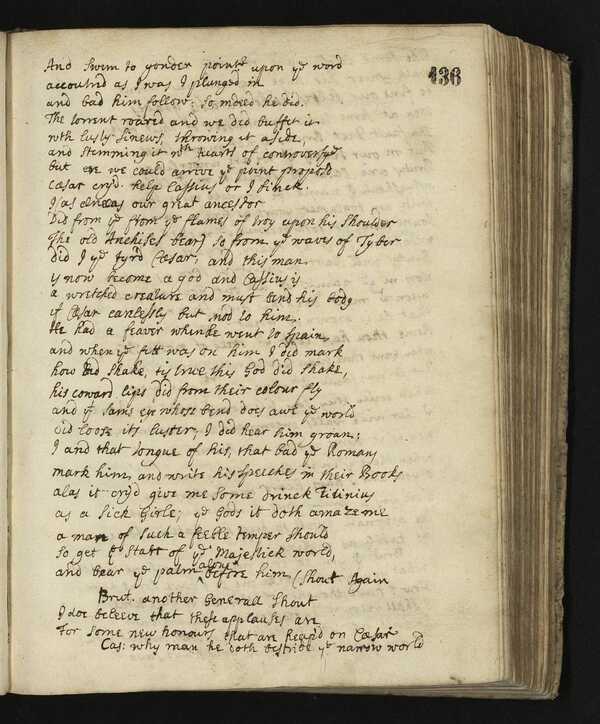 136
And Swim to yonder point, upon ye word
accoutred as I was I plunged in
and bad him follow: So indeed he did.
The torrent roared and we did buffet it
wth lusty Sinews, throwing it aside,
and Stemming it wth hearts of controversye
but ere we could arrive ye point propos'd
Cæsar cry'd. help Cassius or I sinck.
I as Æneas our great ancestor
Did from ye from ye flames of troy upon his Shoulder
The old Anchises bear) so from ye waves of Tyber
did I ye tyr'd Cæsar, and this man
is now become a god and Cassius is
a wretched creature and must bend his body
if Cæsar carelessly but nod to him.
He had a feaver when he went to Spain,
and when ye fitt was on him I did mark
how did Shake, tis true this God did Shake,
his coward lips did from their colour fly
and ye Same eye whose bend does awe ye world
Did loose its luster, I did hear him groan:
I and that tongue of his, that bad ye Romans
mark him, and write his speeches in their Books
alas it cry'd give me some drinck Titinius
as a sick Girle; ye Gods it doth amaze me
a man of such a feeble temper should
so get ye start of ye Majestick world,
and bear ye palm alone before him (Shout Again
Brut. another Generall Shout
I doe beleeve that these applauses are
For some new honours that are heap'd on Cæsar
Cas: why man he doth bestride ye narrow world